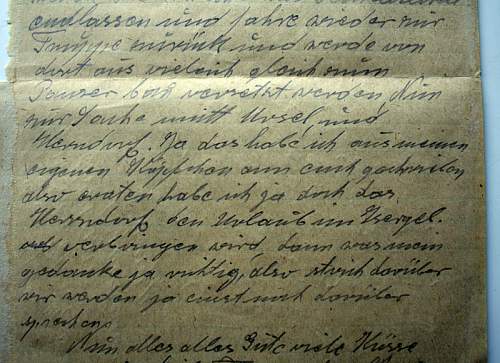 endlassen und fahre wieder zur
Truppe zurück und werde von
dort aus vieleich gleich zum
Panzer verzetzt werden Nun
zur Sache mitt Ursel und
Herrndorf. Ja das habe ich aus meinen
eigenen Köpfchen ann euch geschrieben
also eraten habe ich ja doch das
Herrndorf den Urlaub im
verbringen wird, dann war mein
gedanke ja richtig, also strich darüber
wir werden ja einst noch darüber
sprechen.
Nun alles alles Gute viele Küsse